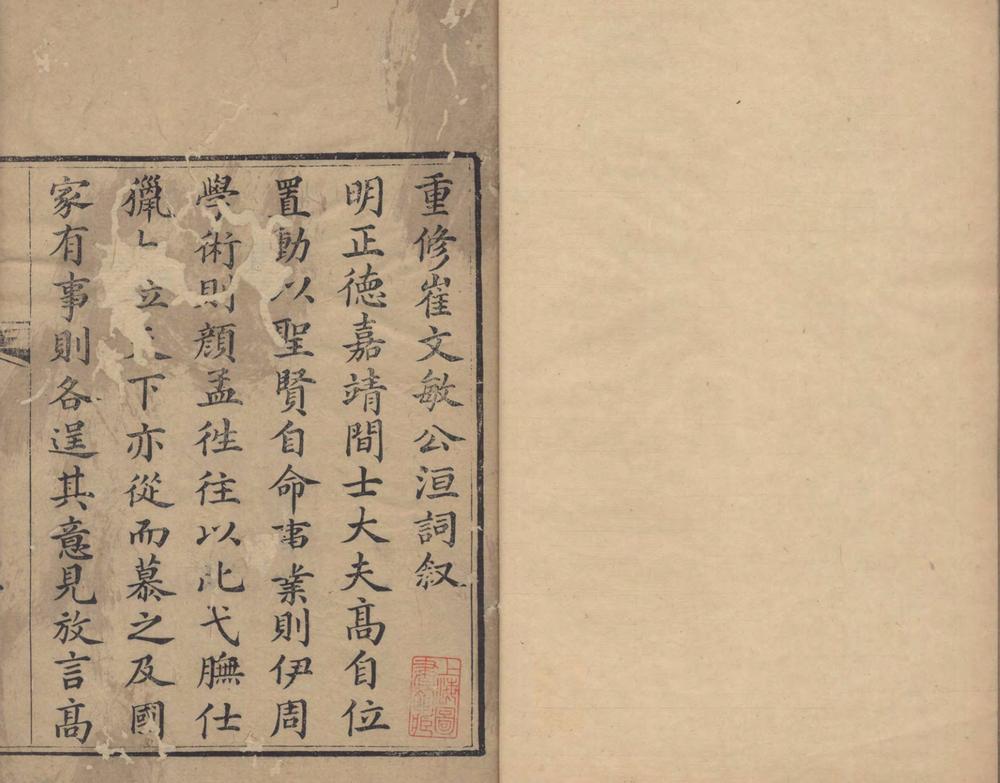 重修崔文敏公洹詞叙
明正德嘉靖間士大夫髙自位
置動以聖賢自命事業則伊周
學術則顔孟徃往以此弋膴仕
獵上位天下亦從而慕之及國
家有事則各逞其意見放言髙
上海圖
書館藏